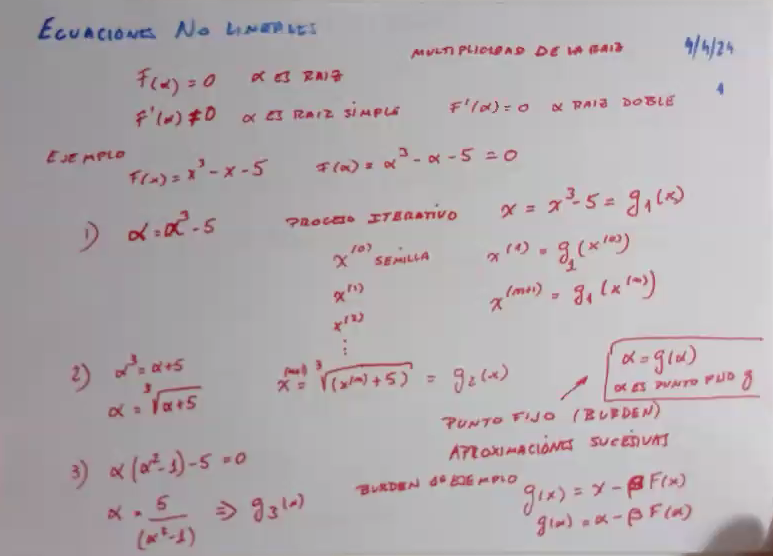 ECUACIONES NO LINEALES
MULTIPLICIDAD DE LA RAIZ
9/4/24
1
F(α) = 0 α ES RAIZ
F'(α) ≠ 0 α ES RAIZ SIMPLE F'(α) = 0 α RAIZ DOBLE
EJEMPLO
F(x) = x³ - x - 5 F(α) = α³ - α - 5 = 0
1) α = α³ - 5 PROCESO ITERATIVO x = x³ - 5 = g₁(x)
x⁽⁰⁾ SEMILLA x⁽¹⁾ = g₁(x⁽⁰⁾)
x⁽¹⁾ x⁽ᵐ⁺¹⁾ = g₁(x⁽ᵐ⁾)
x⁽²⁾
⋮
2) α³ = α + 5 x⁽ᵐ⁺¹⁾ = ³√(x⁽ᵐ⁾ + 5) = g₂(x)
α = ³√(α + 5)
α = g(α)
α ES PUNTO FIJO g
PUNTO FIJO (BURDEN)
APROXIMACIÓNES SUCESIVAS
3) α(α² - 1) - 5 = 0
α = 5/(α² - 1) ⇒ g₃(x)
BURDEN EJEMPLO g(x) = x - β F(x)
g(α) = α - β F(α)